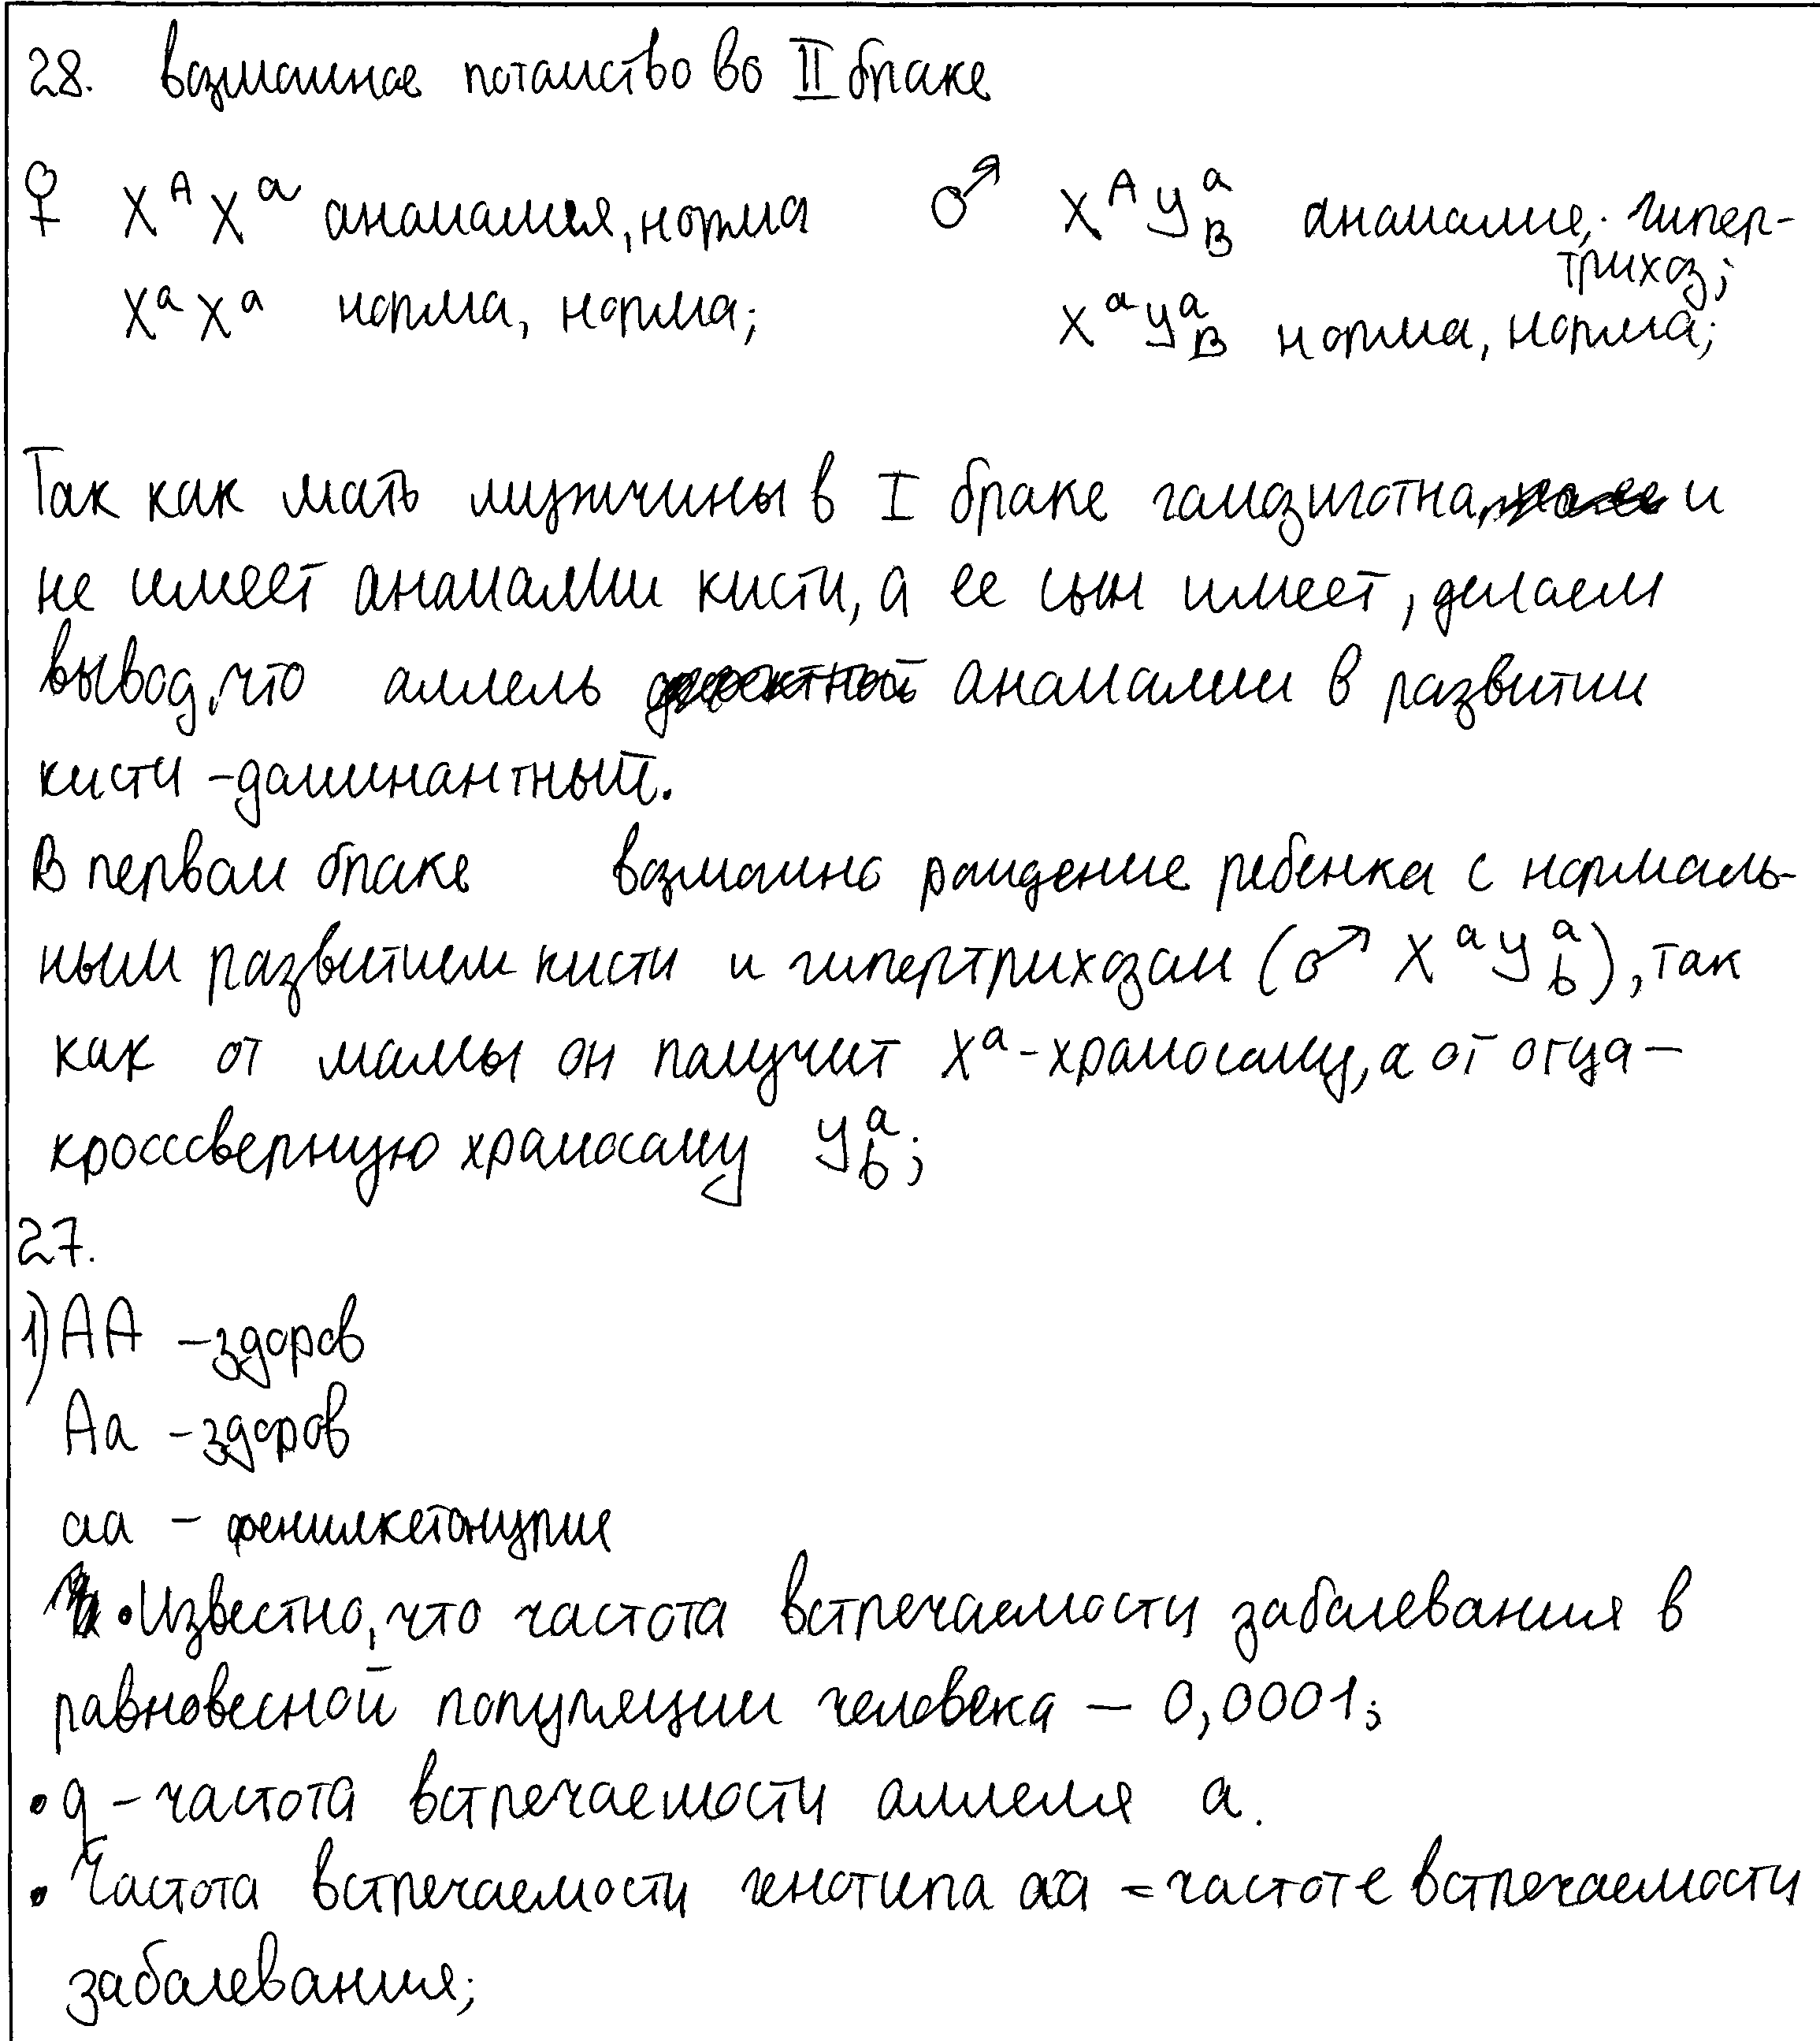 28. возможное потомство во II браке
♀ X^A X^a аномалия, норма ♂ X^A Y^a_B аномалия, гипер-
трихоз;
X^a X^a норма, норма; X^a Y^a_B норма, норма;
Так как мать мужчины в I браке гомозиготна и
не имеет аномалии кисти, а ее сын имеет, делаем
вывод, что аллель аномалии в развитии
кисти - доминантный.
В первом браке возможно рождение ребенка с нормаль-
ным развитием кисти и гипертрихозом (♂ X^a Y^a_b), так
как от мамы он получит X^a - хромосому, а от отца -
кроссверную хромосому Y^a_b;
27.
1) AA - здоров
Aa - здоров
aa - фенилкетонурия
• Известно, что частота встречаемости заболевания в
равновесной популяции человека - 0,0001;
• q - частота встречаемости аллеля a.
• Частота встречаемости генотипа aa = частоте встречаемости
заболевания;